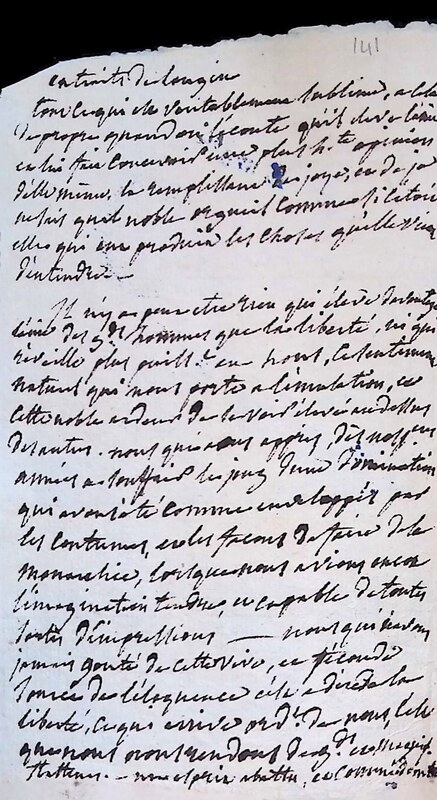 141
extraits de longin
tout ce qui est veritablement sublime, a cela
de propre quand on l'écoute qu'il eleve l'âme
et lui fait concevoir une plus hte opinion
d'elle même, la remplissant de joye, et de je
ne sais quel noble orgueil comme si c'etoit
elle qui eut produit les choses qu'elle vient
d'entendre —
Il n'y a peut etre rien qui éleve davantage
l'âme des gds hommes que la liberté, ni qui
reveille plus puisst en nous, le sentiment
naturel qui nous porte a l'émulation, et
cette noble ardeur de se voir élevé au dessus
des autres. nous qui avons appris, dès nos 1eres
années a souffrir le joug d'une domination
qui avons été comme enveloppés par
les coutumes, et les façons de faire de la
monarchie, lorsque nous avions encor
l'imagination tendre, et capable de toutes
sortes d'impressions — nous qui n'avons
jamais gouté de cette vive, et féconde
source de l'éloquence c'est a dire de la
liberté, ce qui arrive ordt de nous, c'est
que nous nous rendons de gds
flatteurs. — une esprit abattu, et comme